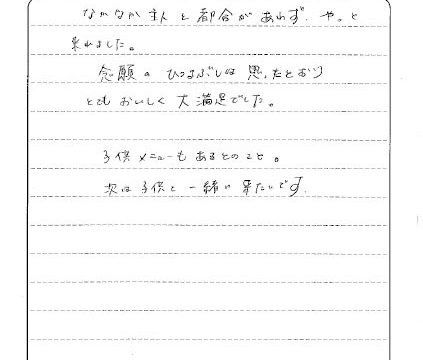 なかなか主人と都合があわず、やっと
来れました。
念願のひつまぶしは思ったとおり
とてもおいしく大満足でした。
子供メニューもあるとのこと。
次は子供と一緒に来たいです。